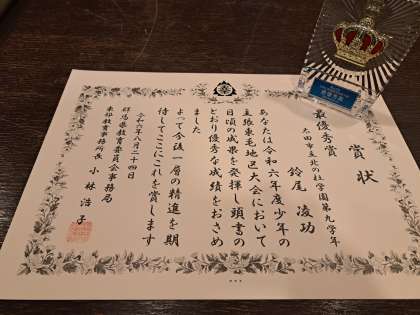 賞状
最優秀賞
太田市立北の杜学園第九学年
鈴尾 凌功
あなたは令和六年度少年の
主張東毛地区大会において
日頃の成果を発揮し頭書の
とおり優秀な成績をおさめ
ました
よって今後一層の精進を期
待してここにこれを賞します
令和六年八月二十四日
群馬県教育委員会事務局
東部教育事務所長 小林 浩子